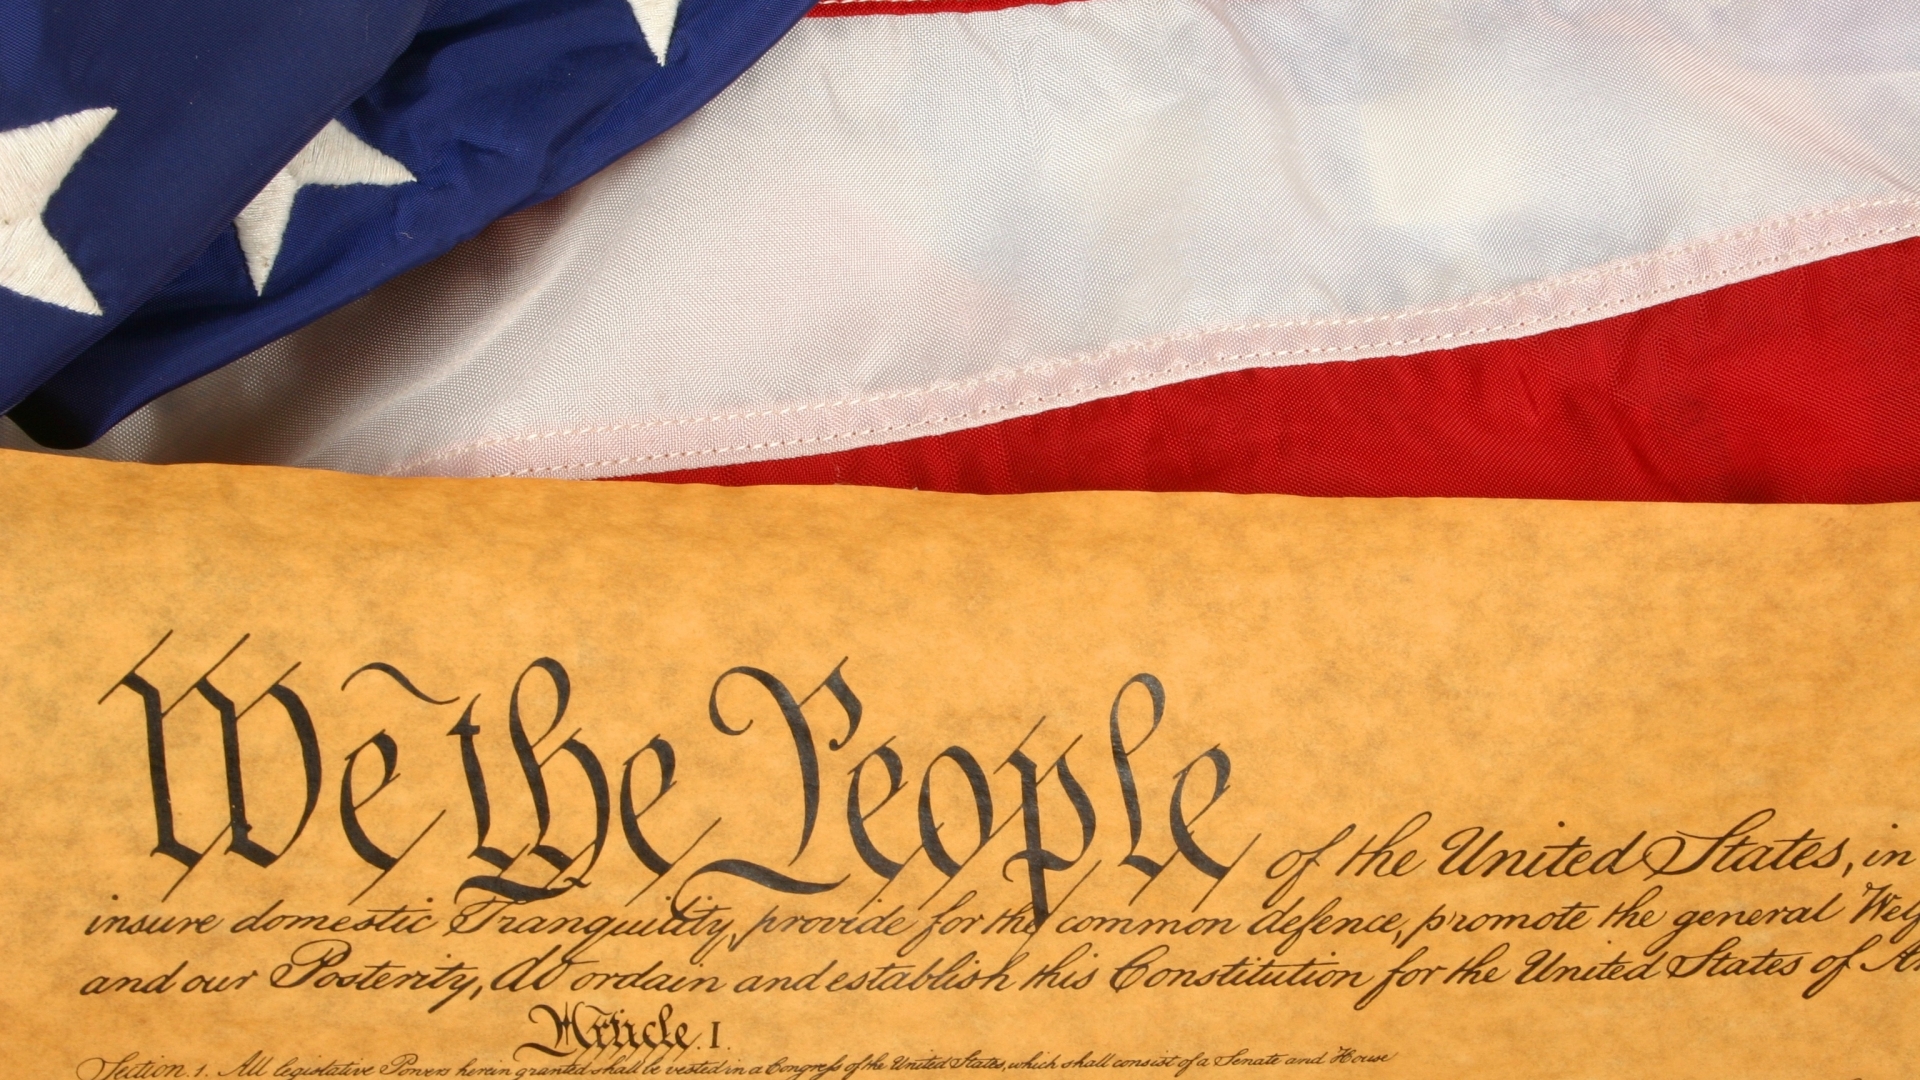 We the People of the United States, in
insure domestic Tranquility, provide for the common defence, promote the general Welf
and our Posterity, do ordain and establish this Constitution for the United States of Am
Article. I.
Section. 1. All legislative Powers herein granted shall be vested in a Congress of the United States, which shall consist of a Senate and House